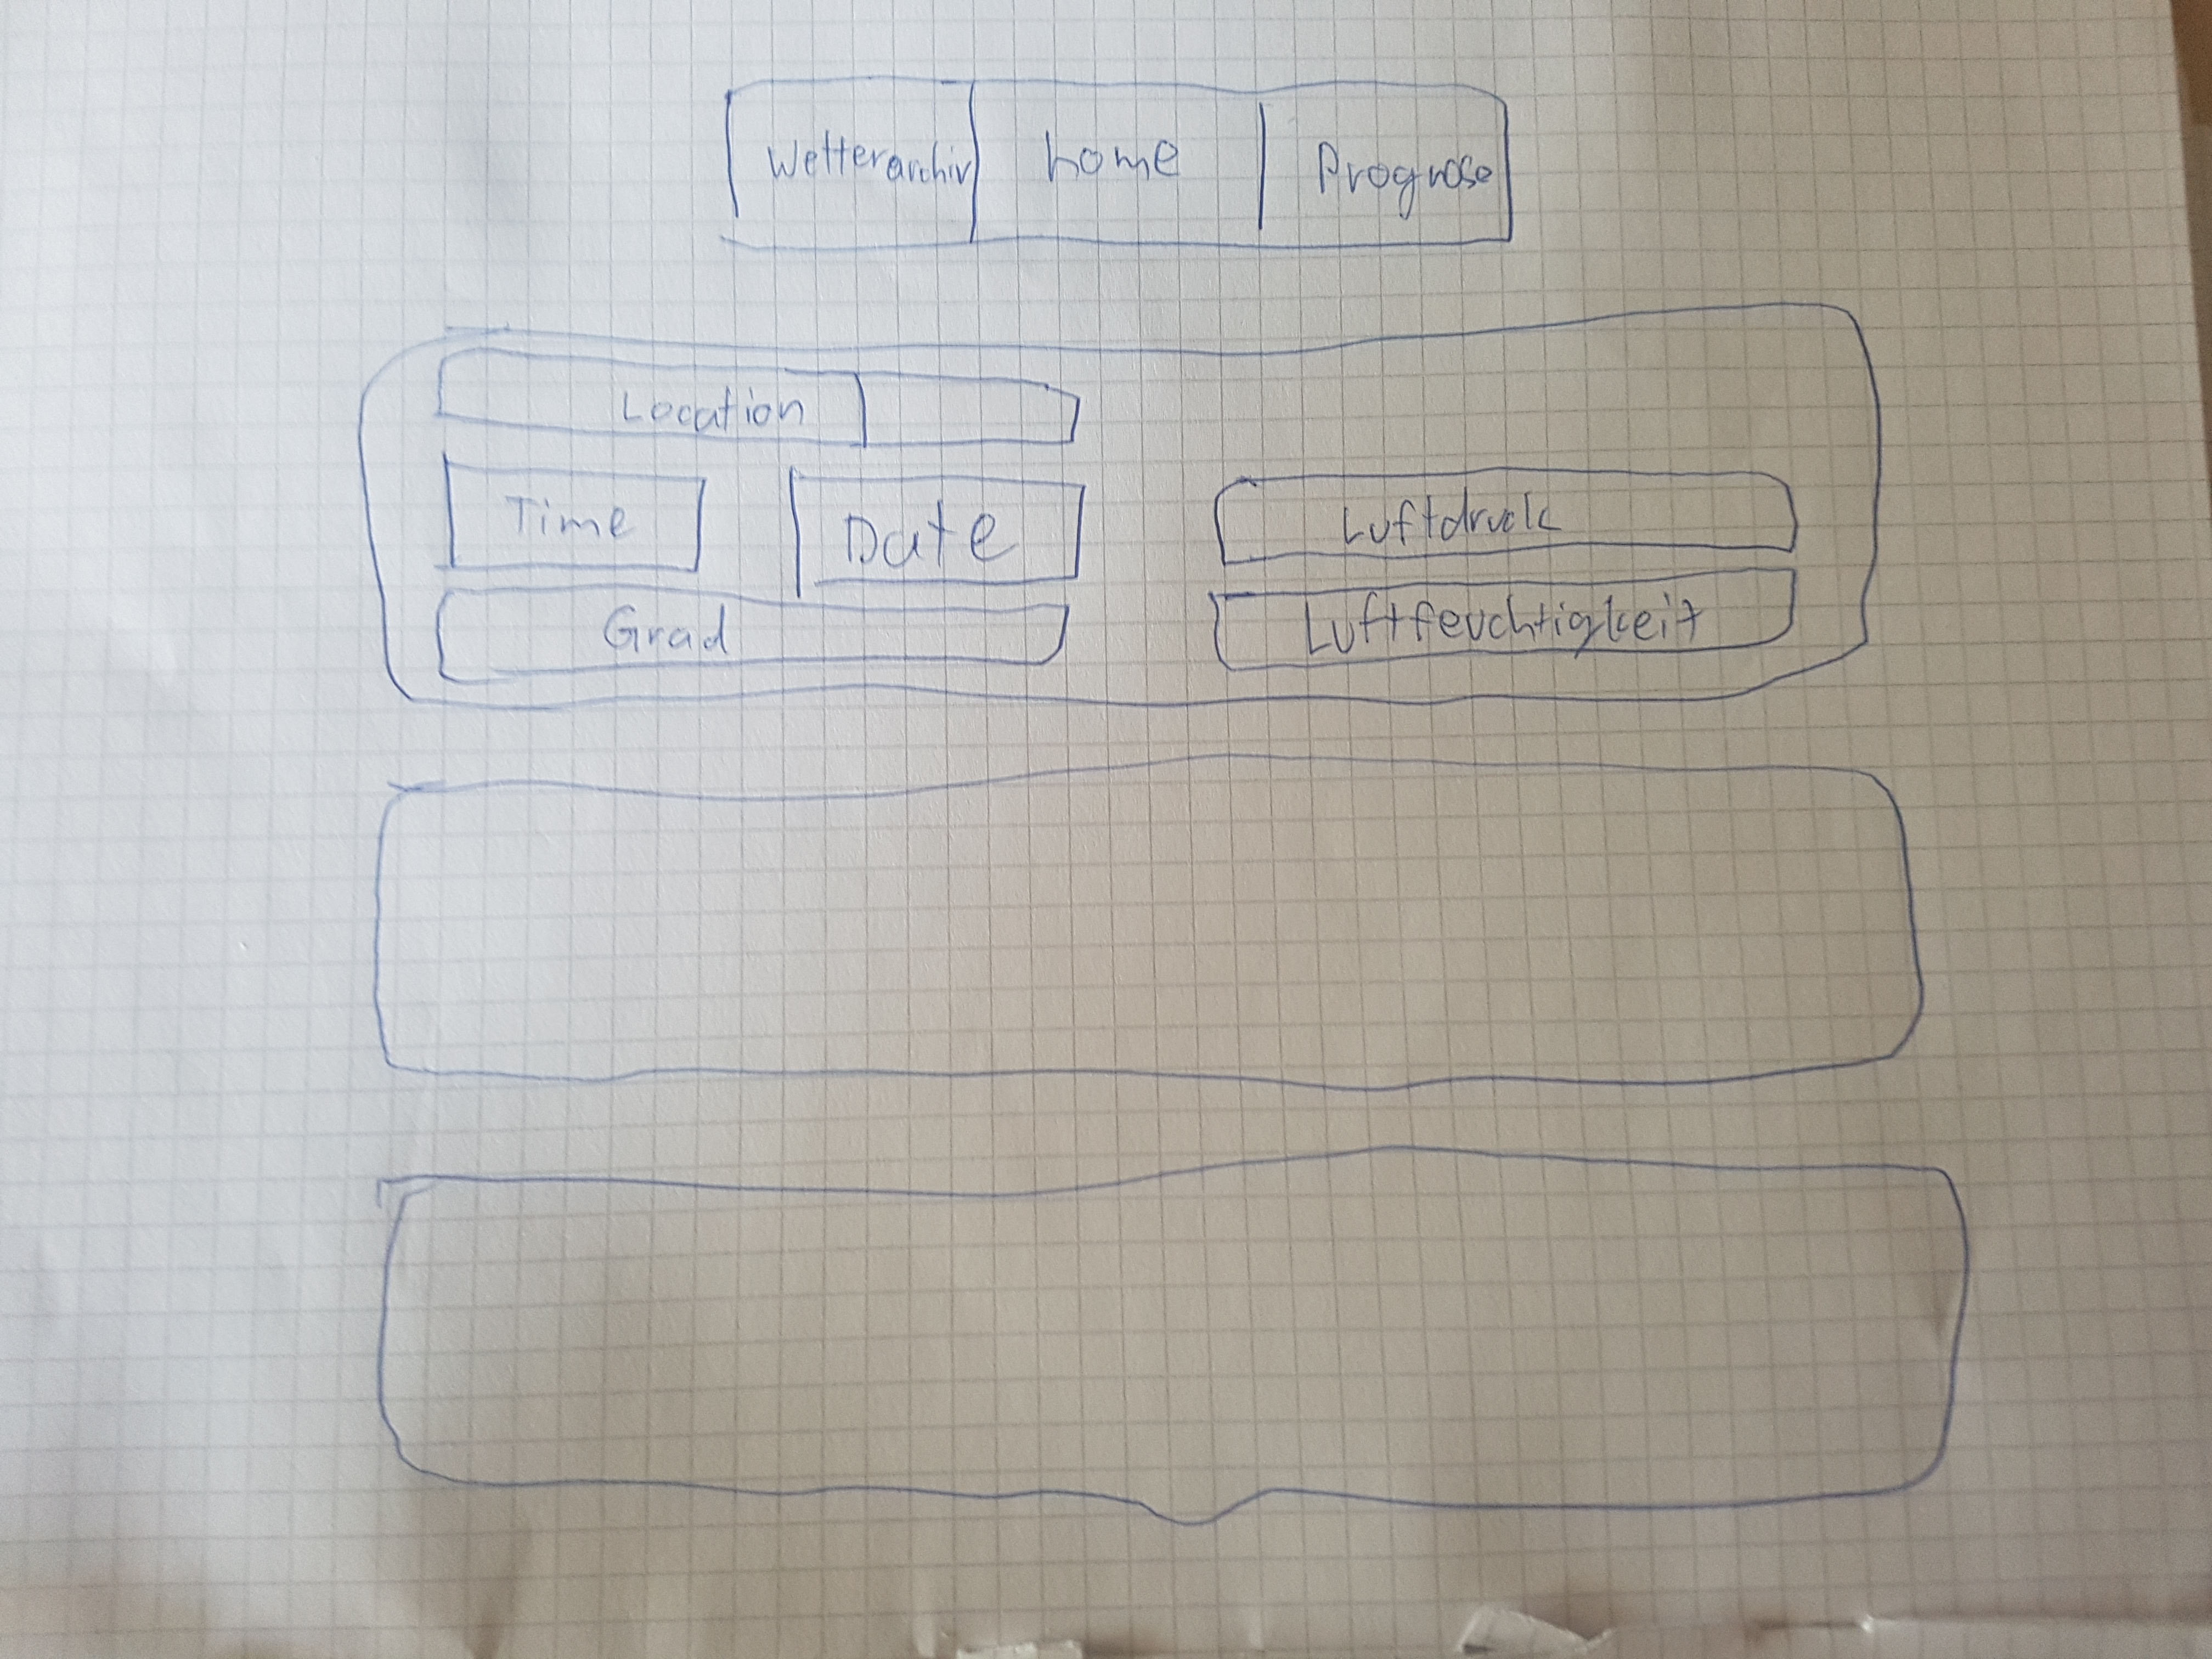 Wetterarchiv home Prognose
Location
Time Date
Luftdruck
Grad
Luftfeuchtigkeit